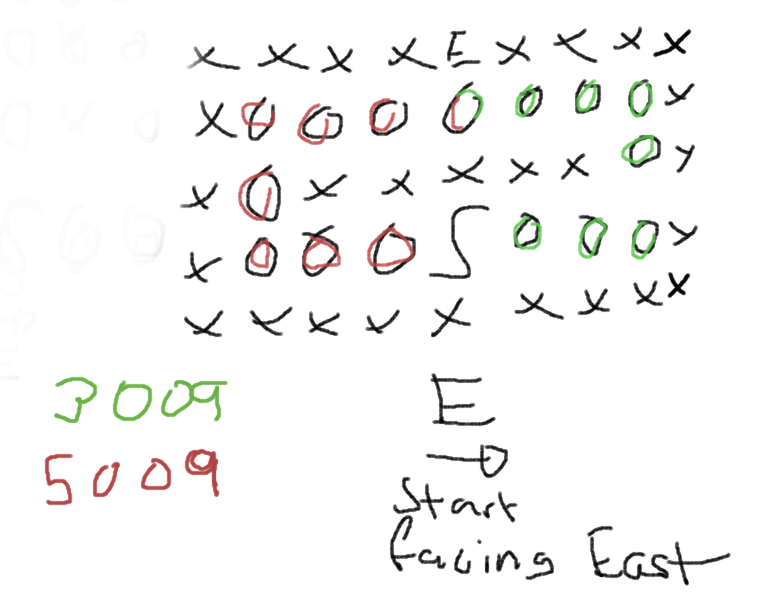 X X X X E X X X X
X 0 0 0 0 0 0 0 X
X 0 X X X X X 0 Y
X 0 0 0 S 0 0 0 Y
X X X X X X X X X
3009 E
5009
Start
facing East